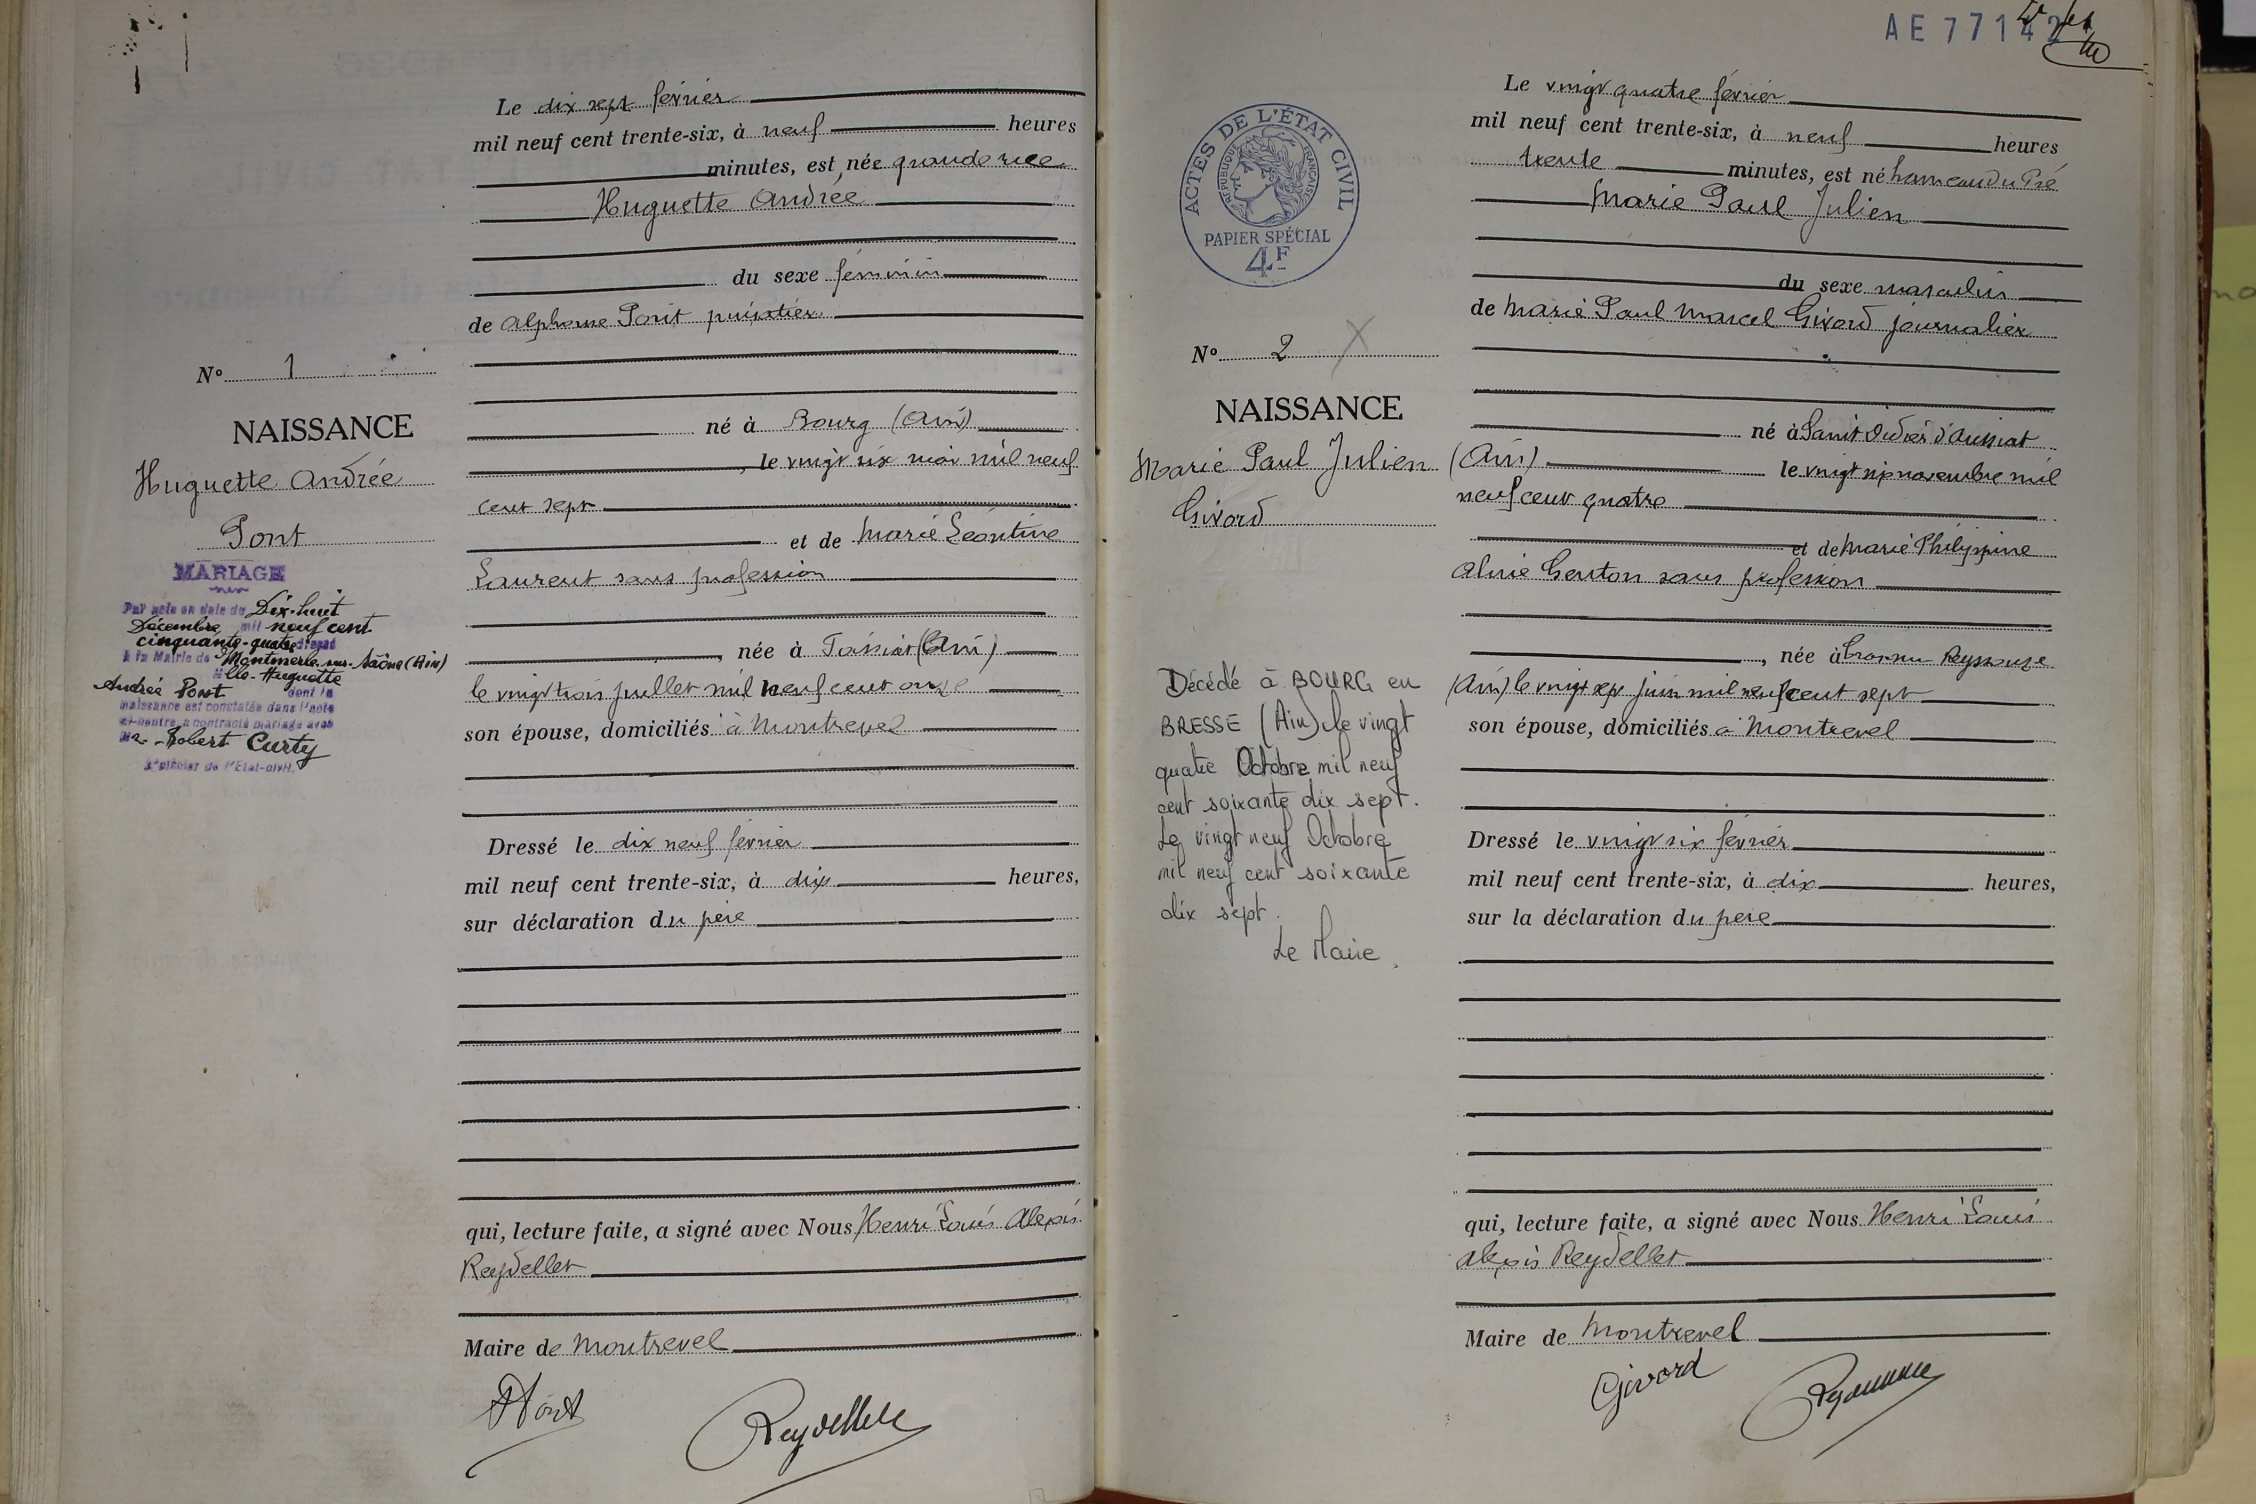 Le dix sept février
mil neuf cent trente-six, à neuf heures
minutes, est née grande rue
Huguette Andrée
du sexe féminin
de Alphonse Pont
né à Bourg (Ain)
, le vingt six mai mil neuf
cent sept
et de Marie Léontine
Laurent sans profession
, née à (Ain)
le vingt trois juillet mil neuf cent onze
son épouse, domiciliés à Montrevel
Dressé le dix neuf février
mil neuf cent trente-six, à dix heures,
sur déclaration du père
qui, lecture faite, a signé avec Nous Henri Louis Alexis
Reydellet
Maire de Montrevel
Pont
Reydellet
No 1
NAISSANCE
Huguette Andrée
Pont
MARIAGE
Par acte en date du Dix-huit
Décembre mil neuf cent
cinquante-quatre dressé
à la Mairie de Montmerle-sur-Saône (Ain)
Mlle Huguette
Andrée Pont dont la
naissance est constatée dans l'acte
ci-contre a contracté mariage avec
Mr Robert Curty
L'officier de l'Etat-civil.
AE 77142
ACTES DE L'ÉTAT CIVIL
RÉPUBLIQUE FRANÇAISE
PAPIER SPÉCIAL
4F
No 2 X
NAISSANCE
Marie Paul Julien
Givord
Décédé à BOURG en
BRESSE (Ain) le vingt
quatre Octobre mil neuf
cent soixante dix sept.
Le vingt neuf Octobre
mil neuf cent soixante
dix sept.
Le Maire.
Le vingt quatre février
mil neuf cent trente-six, à neuf heures
trente minutes, est né hameau du Pré
Marie Paul Julien
du sexe masculin
de Marie Paul Marcel Givord journalier
né à Saint Didier d'Aussiat
(Ain) le vingt novembre mil
neuf cent quatre
et de Marie Philippine
Genton sans profession
, née à Reyssouze
(Ain) le vingt juin mil neuf cent sept
son épouse, domiciliés à Montrevel
Dressé le vingt six février
mil neuf cent trente-six, à dix heures,
sur la déclaration du père
qui, lecture faite, a signé avec Nous Henri Louis
Alexis Reydellet
Maire de Montrevel
Givord
Reydellet